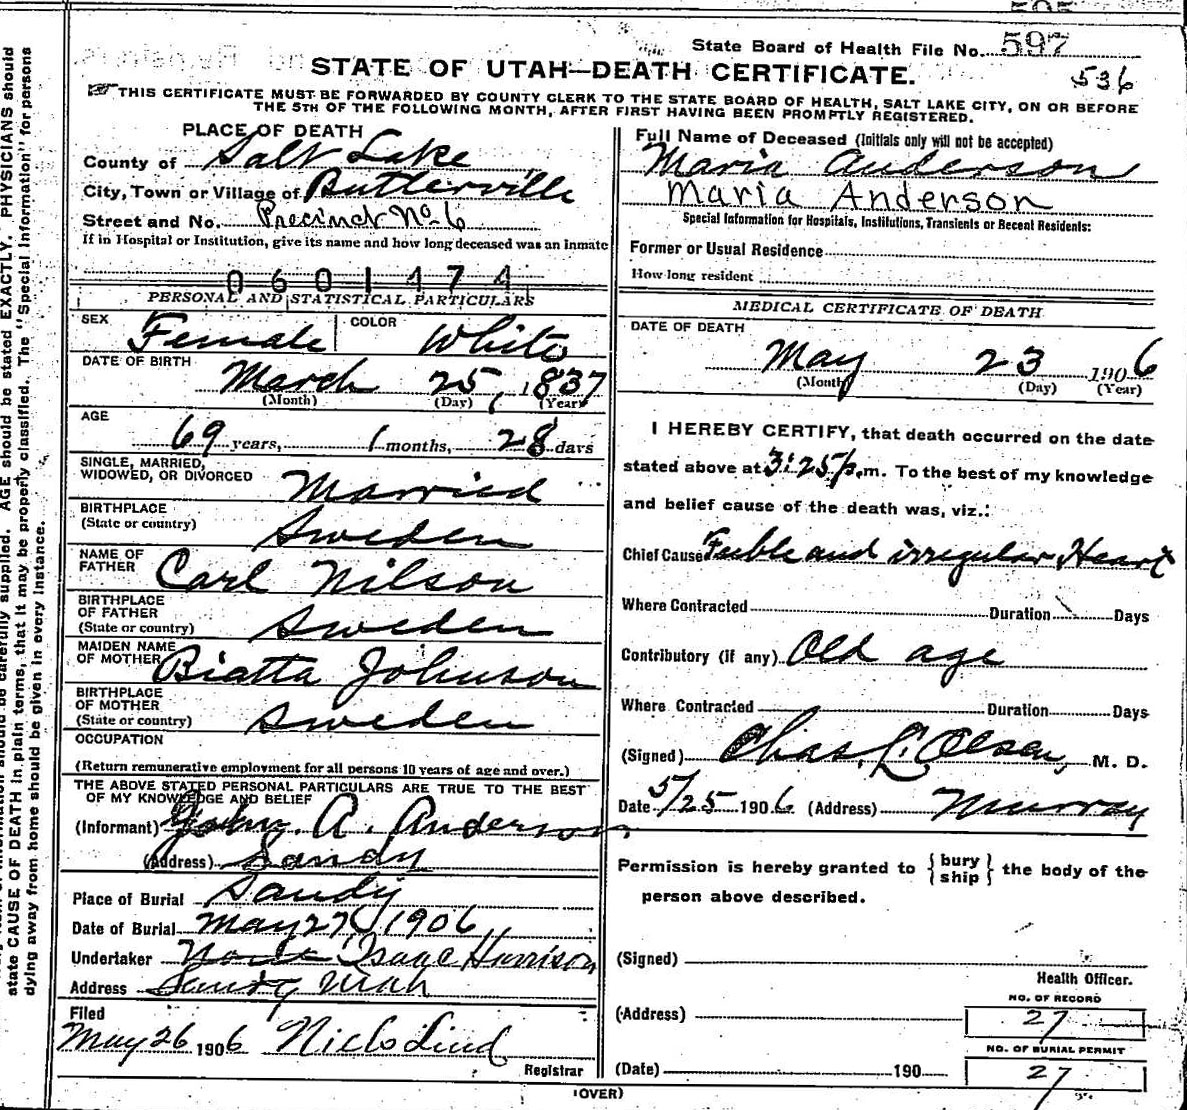 State Board of Health File No. 597
STATE OF UTAH—DEATH CERTIFICATE.
536
THIS CERTIFICATE MUST BE FORWARDED BY COUNTY CLERK TO THE STATE BOARD OF HEALTH, SALT LAKE CITY, ON OR BEFORE
THE 5TH OF THE FOLLOWING MONTH, AFTER FIRST HAVING BEEN PROMPTLY REGISTERED.
PLACE OF DEATH
County of Salt Lake
City, Town or Village of Butlerville
Street and No. Precinct No. 6
If in Hospital or Institution, give its name and how long deceased was an inmate
0601474
PERSONAL AND STATISTICAL PARTICULARS
SEX Female COLOR White
DATE OF BIRTH
March 25, 1837
(Month) (Day) (Year)
AGE
69 years, 1 months, 28 days
SINGLE, MARRIED,
WIDOWED, OR DIVORCED Married
BIRTHPLACE
(State or country) Sweden
NAME OF
FATHER Carl Nilson
BIRTHPLACE
OF FATHER
(State or country) Sweden
MAIDEN NAME
OF MOTHER Biatta Johnson
BIRTHPLACE
OF MOTHER
(State or country) Sweden
OCCUPATION
(Return remunerative employment for all persons 10 years of age and over.)
THE ABOVE STATED PERSONAL PARTICULARS ARE TRUE TO THE BEST
OF MY KNOWLEDGE AND BELIEF
(Informant) John A. Anderson
(Address) Sandy
Place of Burial Sandy
Date of Burial May 27 1906
Undertaker Isaac Harrison
Address Sandy Utah
Filed
May 26 1906
Registrar
Full Name of Deceased (Initials only will not be accepted)
Maria Anderson
Maria Anderson
Special Information for Hospitals, Institutions, Transients or Recent Residents:
Former or Usual Residence
How long resident
MEDICAL CERTIFICATE OF DEATH
DATE OF DEATH
May 23 1906
(Month) (Day) (Year)
I HEREBY CERTIFY, that death occurred on the date
stated above at 3:25 p.m. To the best of my knowledge
and belief cause of the death was, viz.:
Chief Cause Feeble and irregular Heart
Where Contracted Duration Days
Contributory (if any) Old age
Where Contracted Duration Days
(Signed) Chas. L. Olsen, M. D.
Date 5/25 1906 (Address) Murray
Permission is hereby granted to {bury
ship} the body of the
person above described.
(Signed)
Health Officer.
NO. OF RECORD
(Address) 27
NO. OF BURIAL PERMIT
(Date) 190 27
(OVER)
state CAUSE OF DEATH in plain terms, that it may be properly classified. The "Special Information" for persons
dying away from home should be given in every instance.